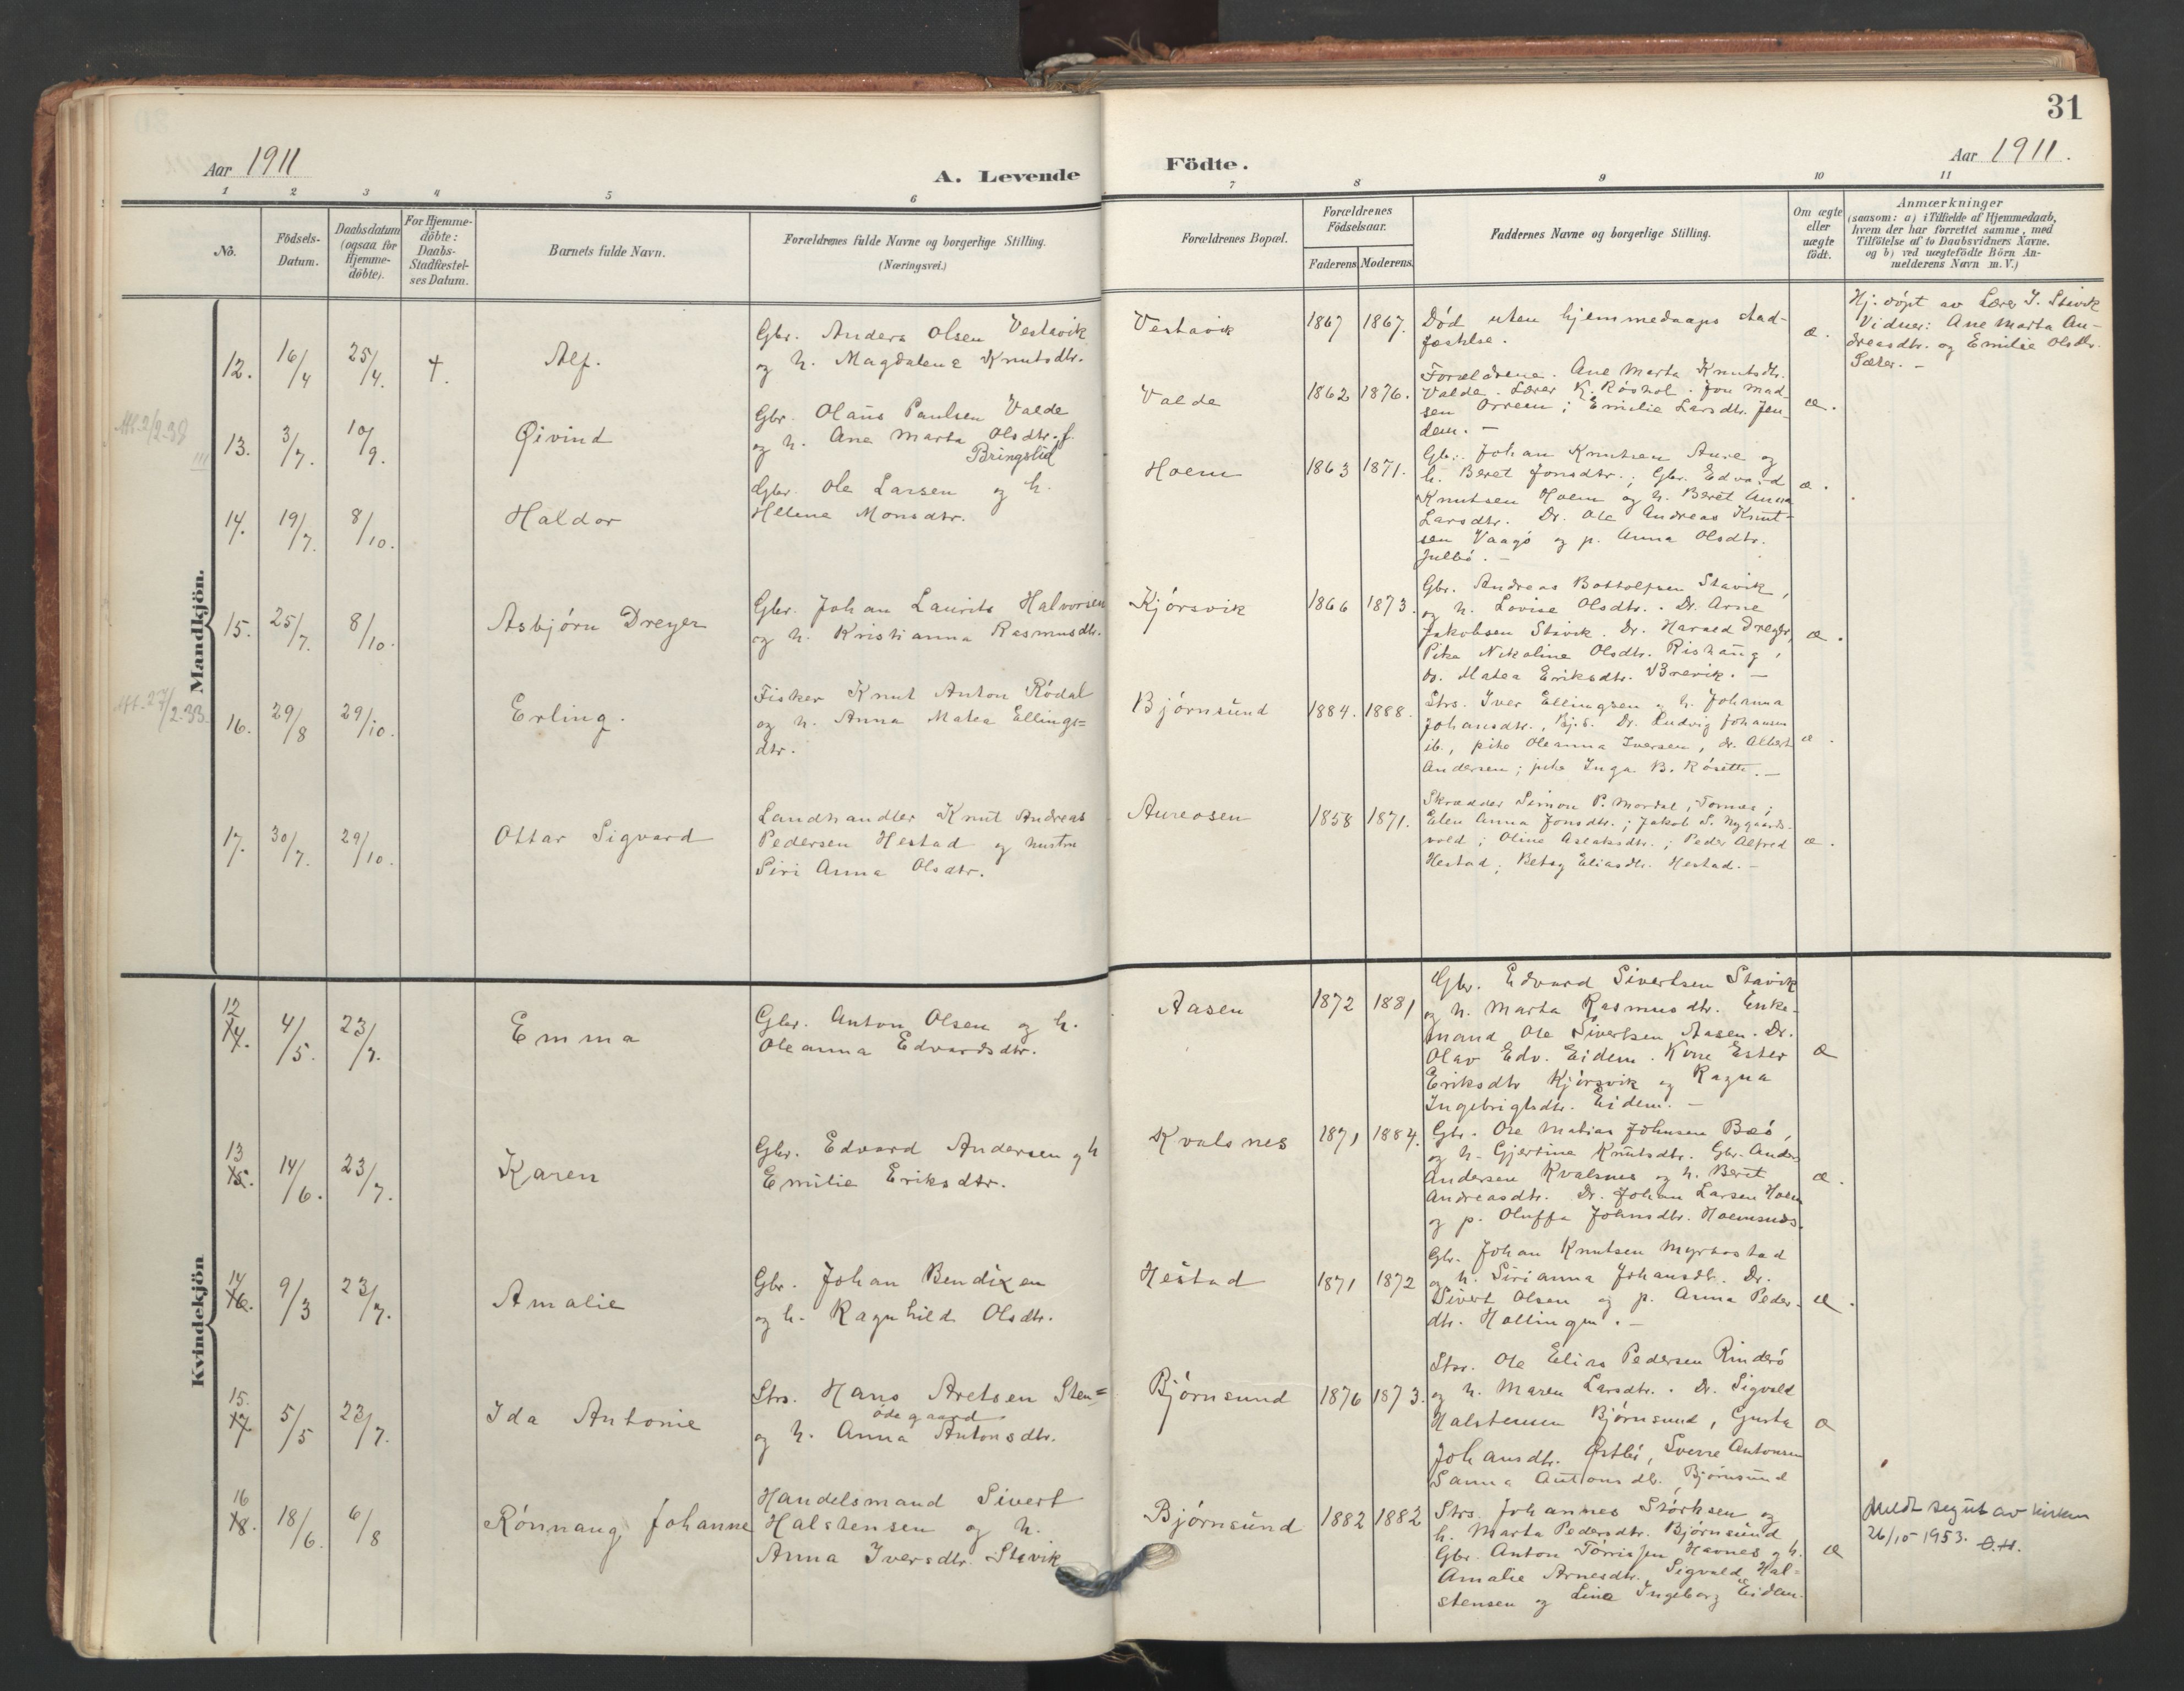 31
Aar 1911
A. Levende
Födte.
Aar 1911.
1 2 3 4 5 6 7 8 9 10 11
No.
Födsels-
Datum.
Daabsdatum
(ogsaa for
Hjemme-
döbte).
For Hjemme-
döbte:
Daabs-
Stadfæstel-
ses Datum.
Barnets fulde Navn.
Forældrenes fulde Navne og borgerlige Stilling.
(Næringsvei.)
Forældrenes Bopæl.
Forældrenes
Födselsaar.
Faderens Moderens
Faddernes Navne og borgerlige Stilling.
Om ægte
eller
uægte
födt.
Anmærkninger
(saasom: a) i Tilfælde af Hjemmedaab,
hvem der har forrettet samme, med
Tilföielse af to Daabsvidners Navne.
og b) ved uægtefödte Börn An-
melderens Navn m. V.)
Mandkjön.
12. 16/4 25/4. +. Alf.
Gbr. Anders Olsen Vestavik
og h. Magdalene Knutsdtr.
Vestavik 1867 1867.
Död uten hjemmedaaps stad-
fæstelse.
æ.
Hj. döpt av Lærer J. Stavik
Vidner: Ane Marta An-
dreasdtr. og Emilie Olsdtr.
Sæter. -
13. 3/7. 10/9. Øivind
Gbr. Olaus Paulsen Valde
og h. Ane Marta Olsdtr. f.
Bringslid
Valde 1862 1876.
Forældrene. Ane Marta Knutsdtr.
Valde. Lærer K. Röshol. Jon Mad-
sen Orreem; Emilie Larsdtr. Jen-
dem. -
æ.
14. 19/7. 8/10. Haldor
Gbr. Ole Larsen og h.
Helene Monsdtr.
Hoem 1863 1871.
Gbr. Johan Knutsen Aure og
h. Beret Jonsdtr.; Gbr. Edvard
Knutsen Hoem og h. Beret Anna
Larsdtr. Dr. Ole Andreas Knut-
sen Vaagö og p. Anna Olsdtr.
Julbö. -
æ.
15. 25/7. 8/10. Asbjörn Dreyer
Gbr. Johan Laurits Halvorsen
og h. Kristianna Rasmusdtr.
Kjörsvik 1866 1873.
Gbr. Andreas Bottolfsen Stavik,
og h. Lovise Olsdtr. Dr. Arne
Jakobsen Stavik. Dr. Harald Dreyer,
Pike Nikoline Olsdtr. Rishaug,
do. Matea Eriksdtr. Brevik. -
æ.
16. 29/8 29/10. Erling.
Fisker Knut Anton Rödal
og h. Anna Matea Ellings=
dtr.
Björnsund 1884. 1888.
Strs. Iver Ellingsen og h. Johanna
Johansdtr., Bj.s. Dr. Ludvig Johansen
ib., pike Oleanna Iversen, dr. Albert
Andersen; pike Inga B. Rösette. -
æ.
17. 30/7. 29/10. Ottar Sigvard
Landhandler Knut Andreas
Pedersen Hestad og hustru
Siri Anna Olsdtr.
Aureosen 1858 1871.
Skrædder Simon P. Mordal, Tornes;
Elen Anna Jonsdtr.; Jakob S. Nygaards-
vold; Oline Aslaksdtr.; Peder Alfred
Hestad; Betsy Eliasdtr. Hestad. -
æ.
Kvindekjön
12 14. 4/5. 23/7. Emma
Gbr. Anton Olsen og h.
Oleanna Edvardsdtr.
Aasen 1872 1881
Gbr. Edvard Sivertsen Stavik
og h. Marta Rasmusdtr. Enke-
mand Ole Sivertsen Aasen. Dr.
Olav Edv. Eidem. Kone Ester
Eriksdtr Kjörsvik og Ragna
Ingebrigtsdtr. Eidem. -
æ
13 15. 14/6. 23/7. Karen
Gbr. Edvard Andersen og h
Emilie Eriksdtr.
Kvalsnes 1871 1884.
Gbr. Ole Matias Johnsen Bæö,
og h. Gjertine Knutsdtr. Gbr. Anders
Andersen Kvalsnes og h. Berit
Andreasdtr. Dr. Johan Larsen Hoem
og p. Oluffa Johnsdtr. Hoemsnes.
æ.
14 16. 9/3 23/7. Amalie
Gbr. Johan Bendixen
og h. Ragnhild Olsdtr.
Hestad 1871 1872
Gbr. Johan Knutsen Myrbostad
og h. Sirianna Johansdtr. Dr.
Sivert Olsen og p. Anna Peder-
dtr. Hollingen. -
æ.
15. 17 5/5 23/7. Ida Antonie
Strs. Hans Aretsen Sten=
ödegaard
og h. Anna Antonsdtr.
Björnsund 1876 1873.
Strs. Ole Elias Pedersen Rinderö
og h. Maren Larsdtr. Dr. Sigvald
Halstensen Björnsund, Gusta
Johansdtr. Ostbö, Sverre Antonsen
Sanna Antonsdtr. Björnsund
æ
16 18. 18/6. 6/8 Rönnaug Johanne
Handelsmand Sivert
Halstensen og h.
Anna Iversdtr. Stavik
Björnsund 1882 1882
Strs. Johannes Störksen og
h. Marta Pedersdtr. Björnsund,
Gbr. Anton Törrissen Havnes og h.
Amalie Arnesdtr. Sigvald Hal-
stensen og Lina Ingeborg Eidem.
æ
Meldt seg ut av kirken
26/10 1953. O.H.